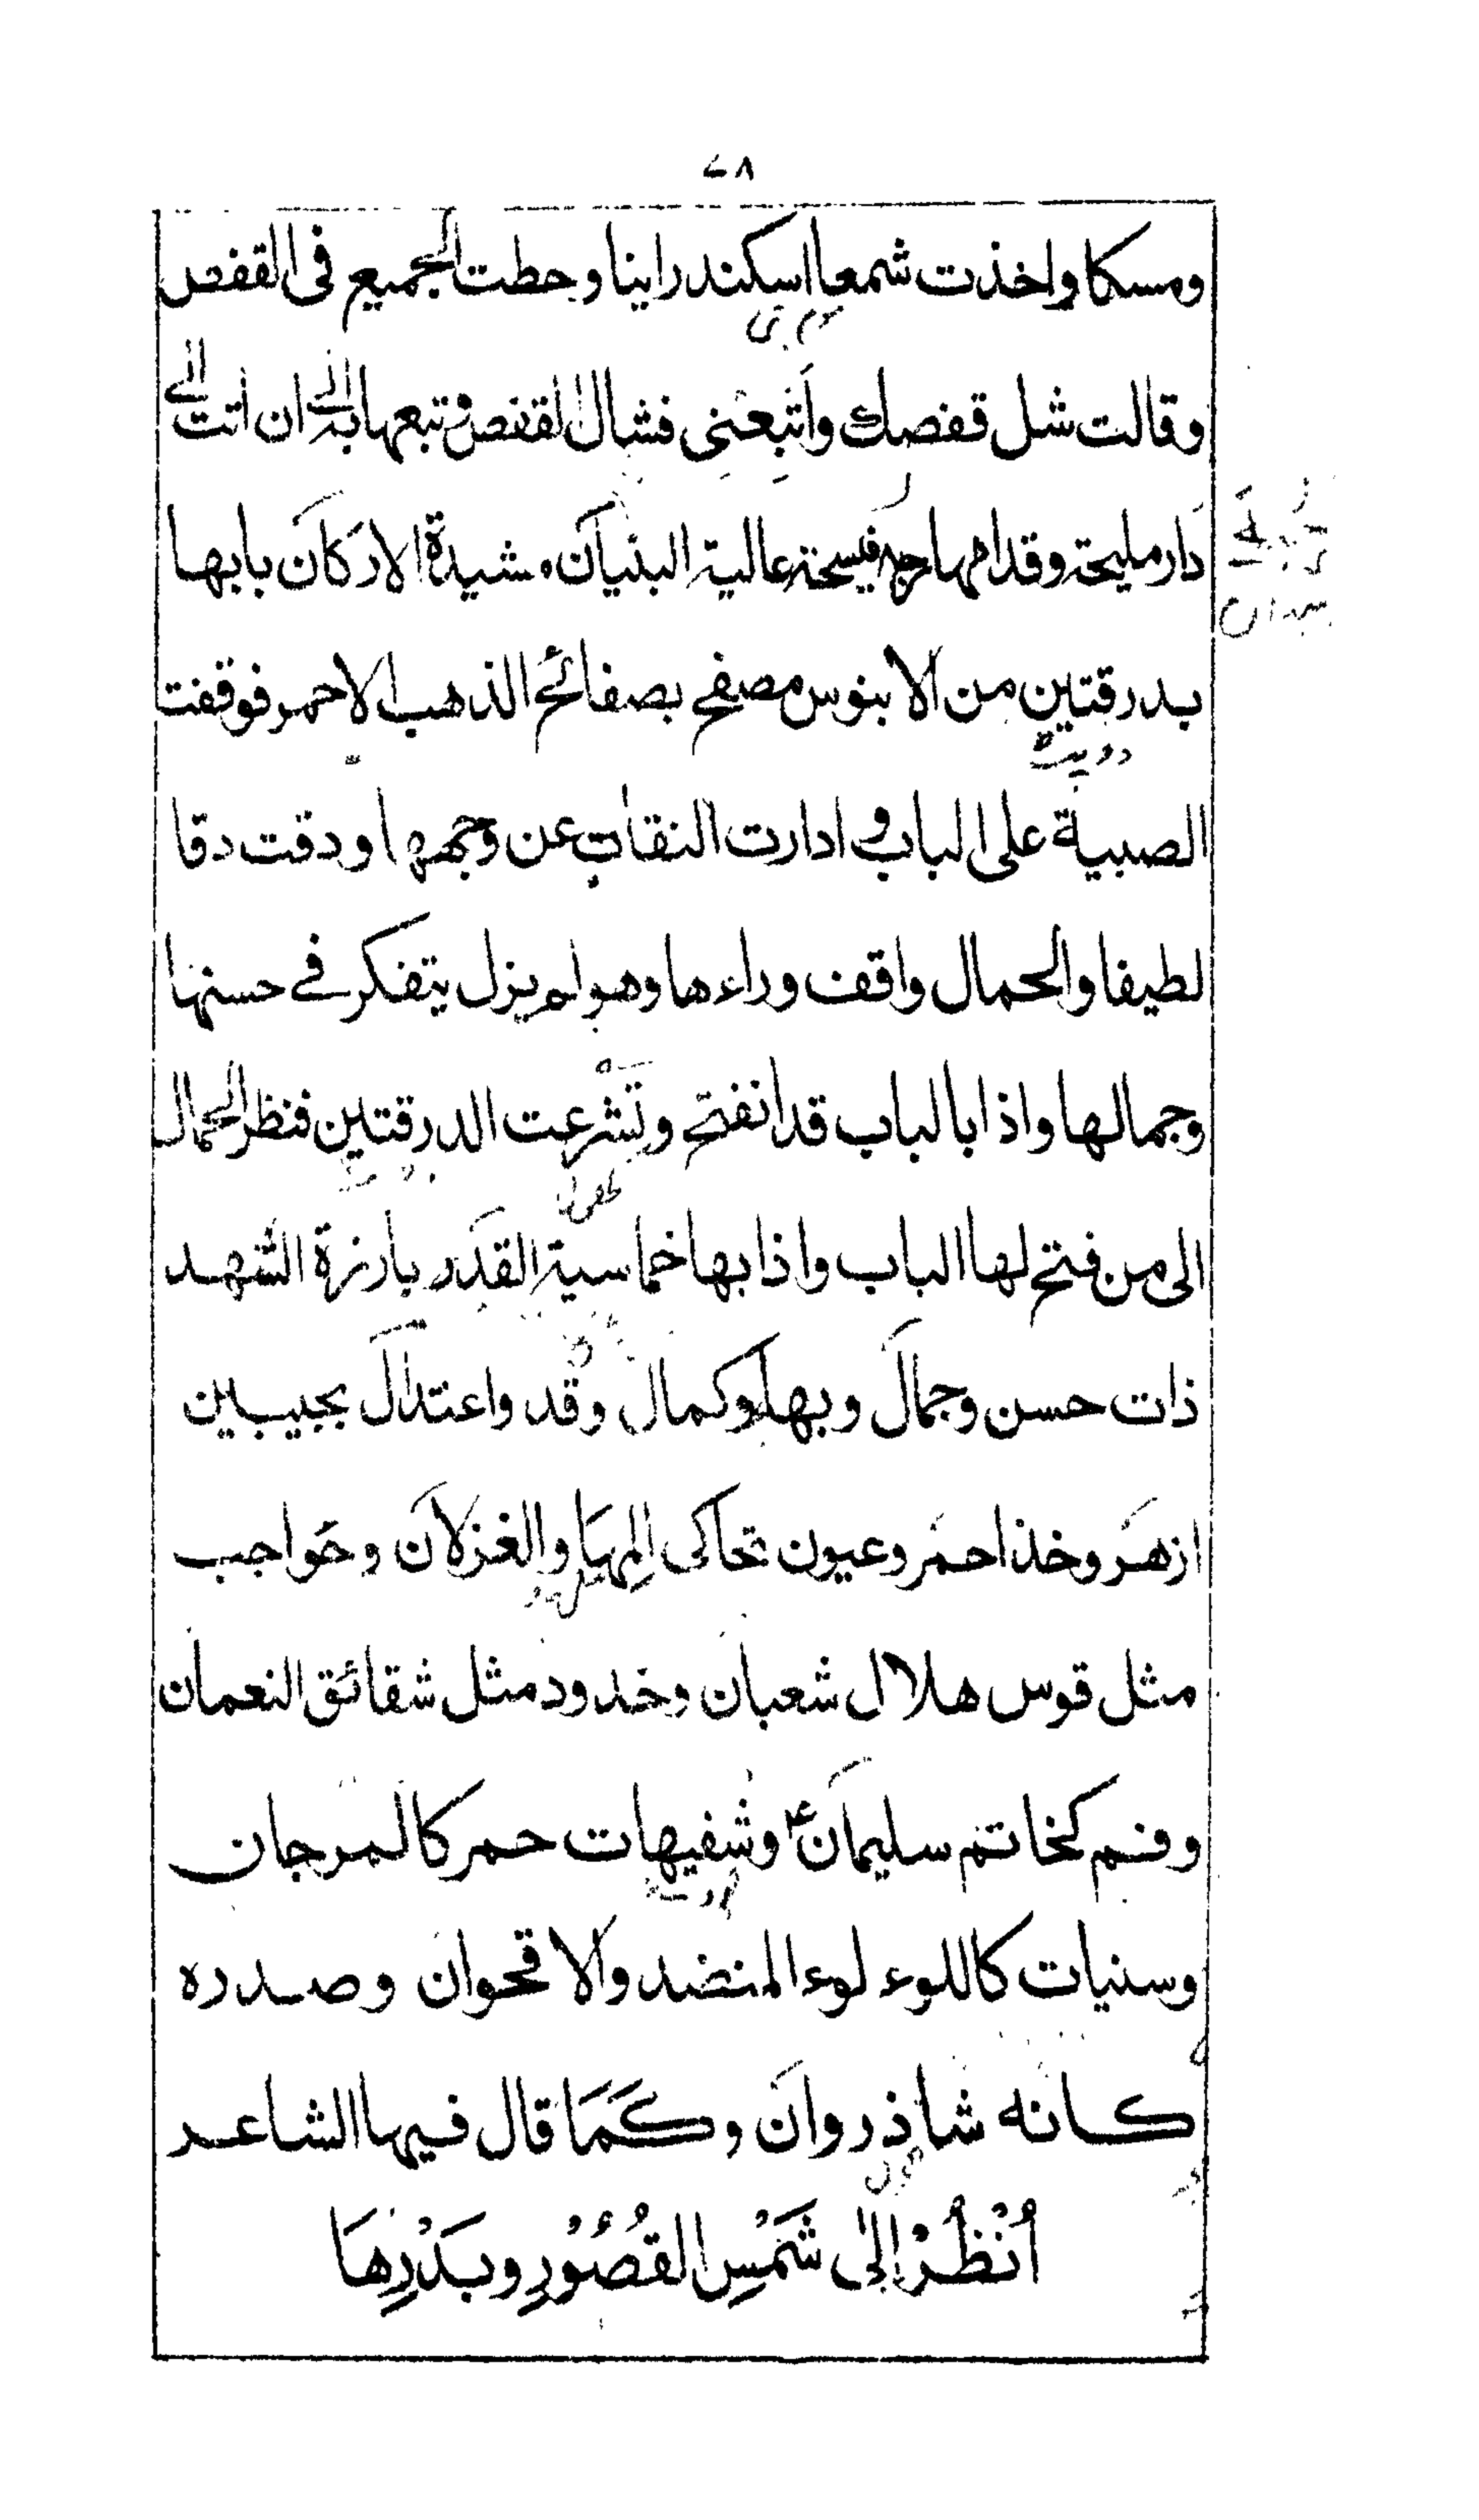 ٧٨
ومسكا واخذت شمعا اسكندرانيا وحطت الجميع فى القفص
وقالت شل قفصك واتبعنى فشال القفص وتبعها الى ان اتت الى
دار مليحة وقدامها رحبة فسيحة عالية البنيان مشيدة الاركان بابها
بدرقتين من الابنوس مصفح بصفائح الذهب الاحمر فوقفت
الصبية على الباب و ادارت النقاب عن وجهها ودقت دقا
لطيفا والحمال واقف وراءها وهو لم يزل يتفكر فے حسنها
وجمالها واذا بالباب قد انفتح وتشرعت الدرقتين فنظر الحمال
الى من فتح لها الباب واذا بها خماسية القدر بارزة الشهد
ذات حسن وجمال وبهاء وكمال وقد واعتدال بجبين
ازهر وخد احمر وعيون تحاكى المها والغزلان وحواجب
مثل قوس هلال شعبان وخدود مثل شقائق النعمان
وفم كخاتم سليمان ع وشفيهات حمر كالمرجان
وسنيات كاللوء لوء المنضد والاقحوان وصدره
كانه شاذروان وكَمَا قال فيها الشاعر
أُنْظُرْ إلى شَمْسِ القُصُوْرِ وبَدْرِهَا